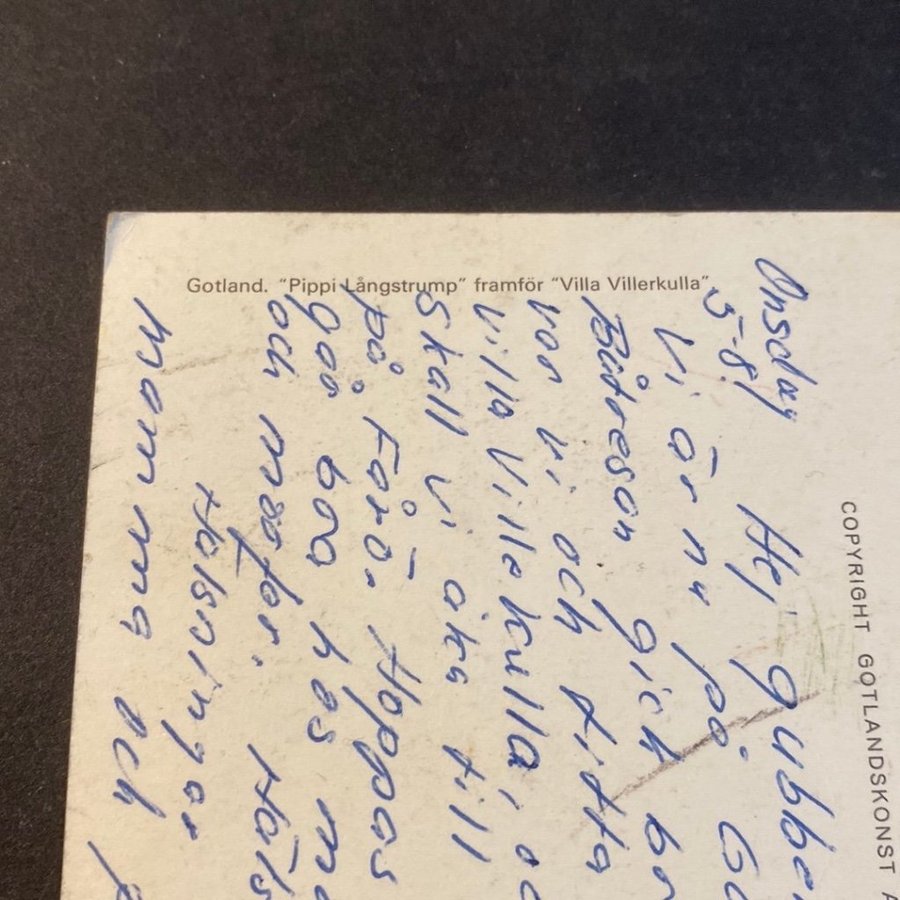 Gotland. "Pippi Långstrump" framför "Villa Villerkulla"
COPYRIGHT GOTLANDSKONST A
Onsdag
5-8 Hej gubbe
Vi är nu på Go
Båtresan gick br
var vi och titta
villa Villekulla, oc
Skall vi åka till
på Fårö. Hoppas
går bra hos mo
och morfar. Häls
Hälsningar
mamma och p